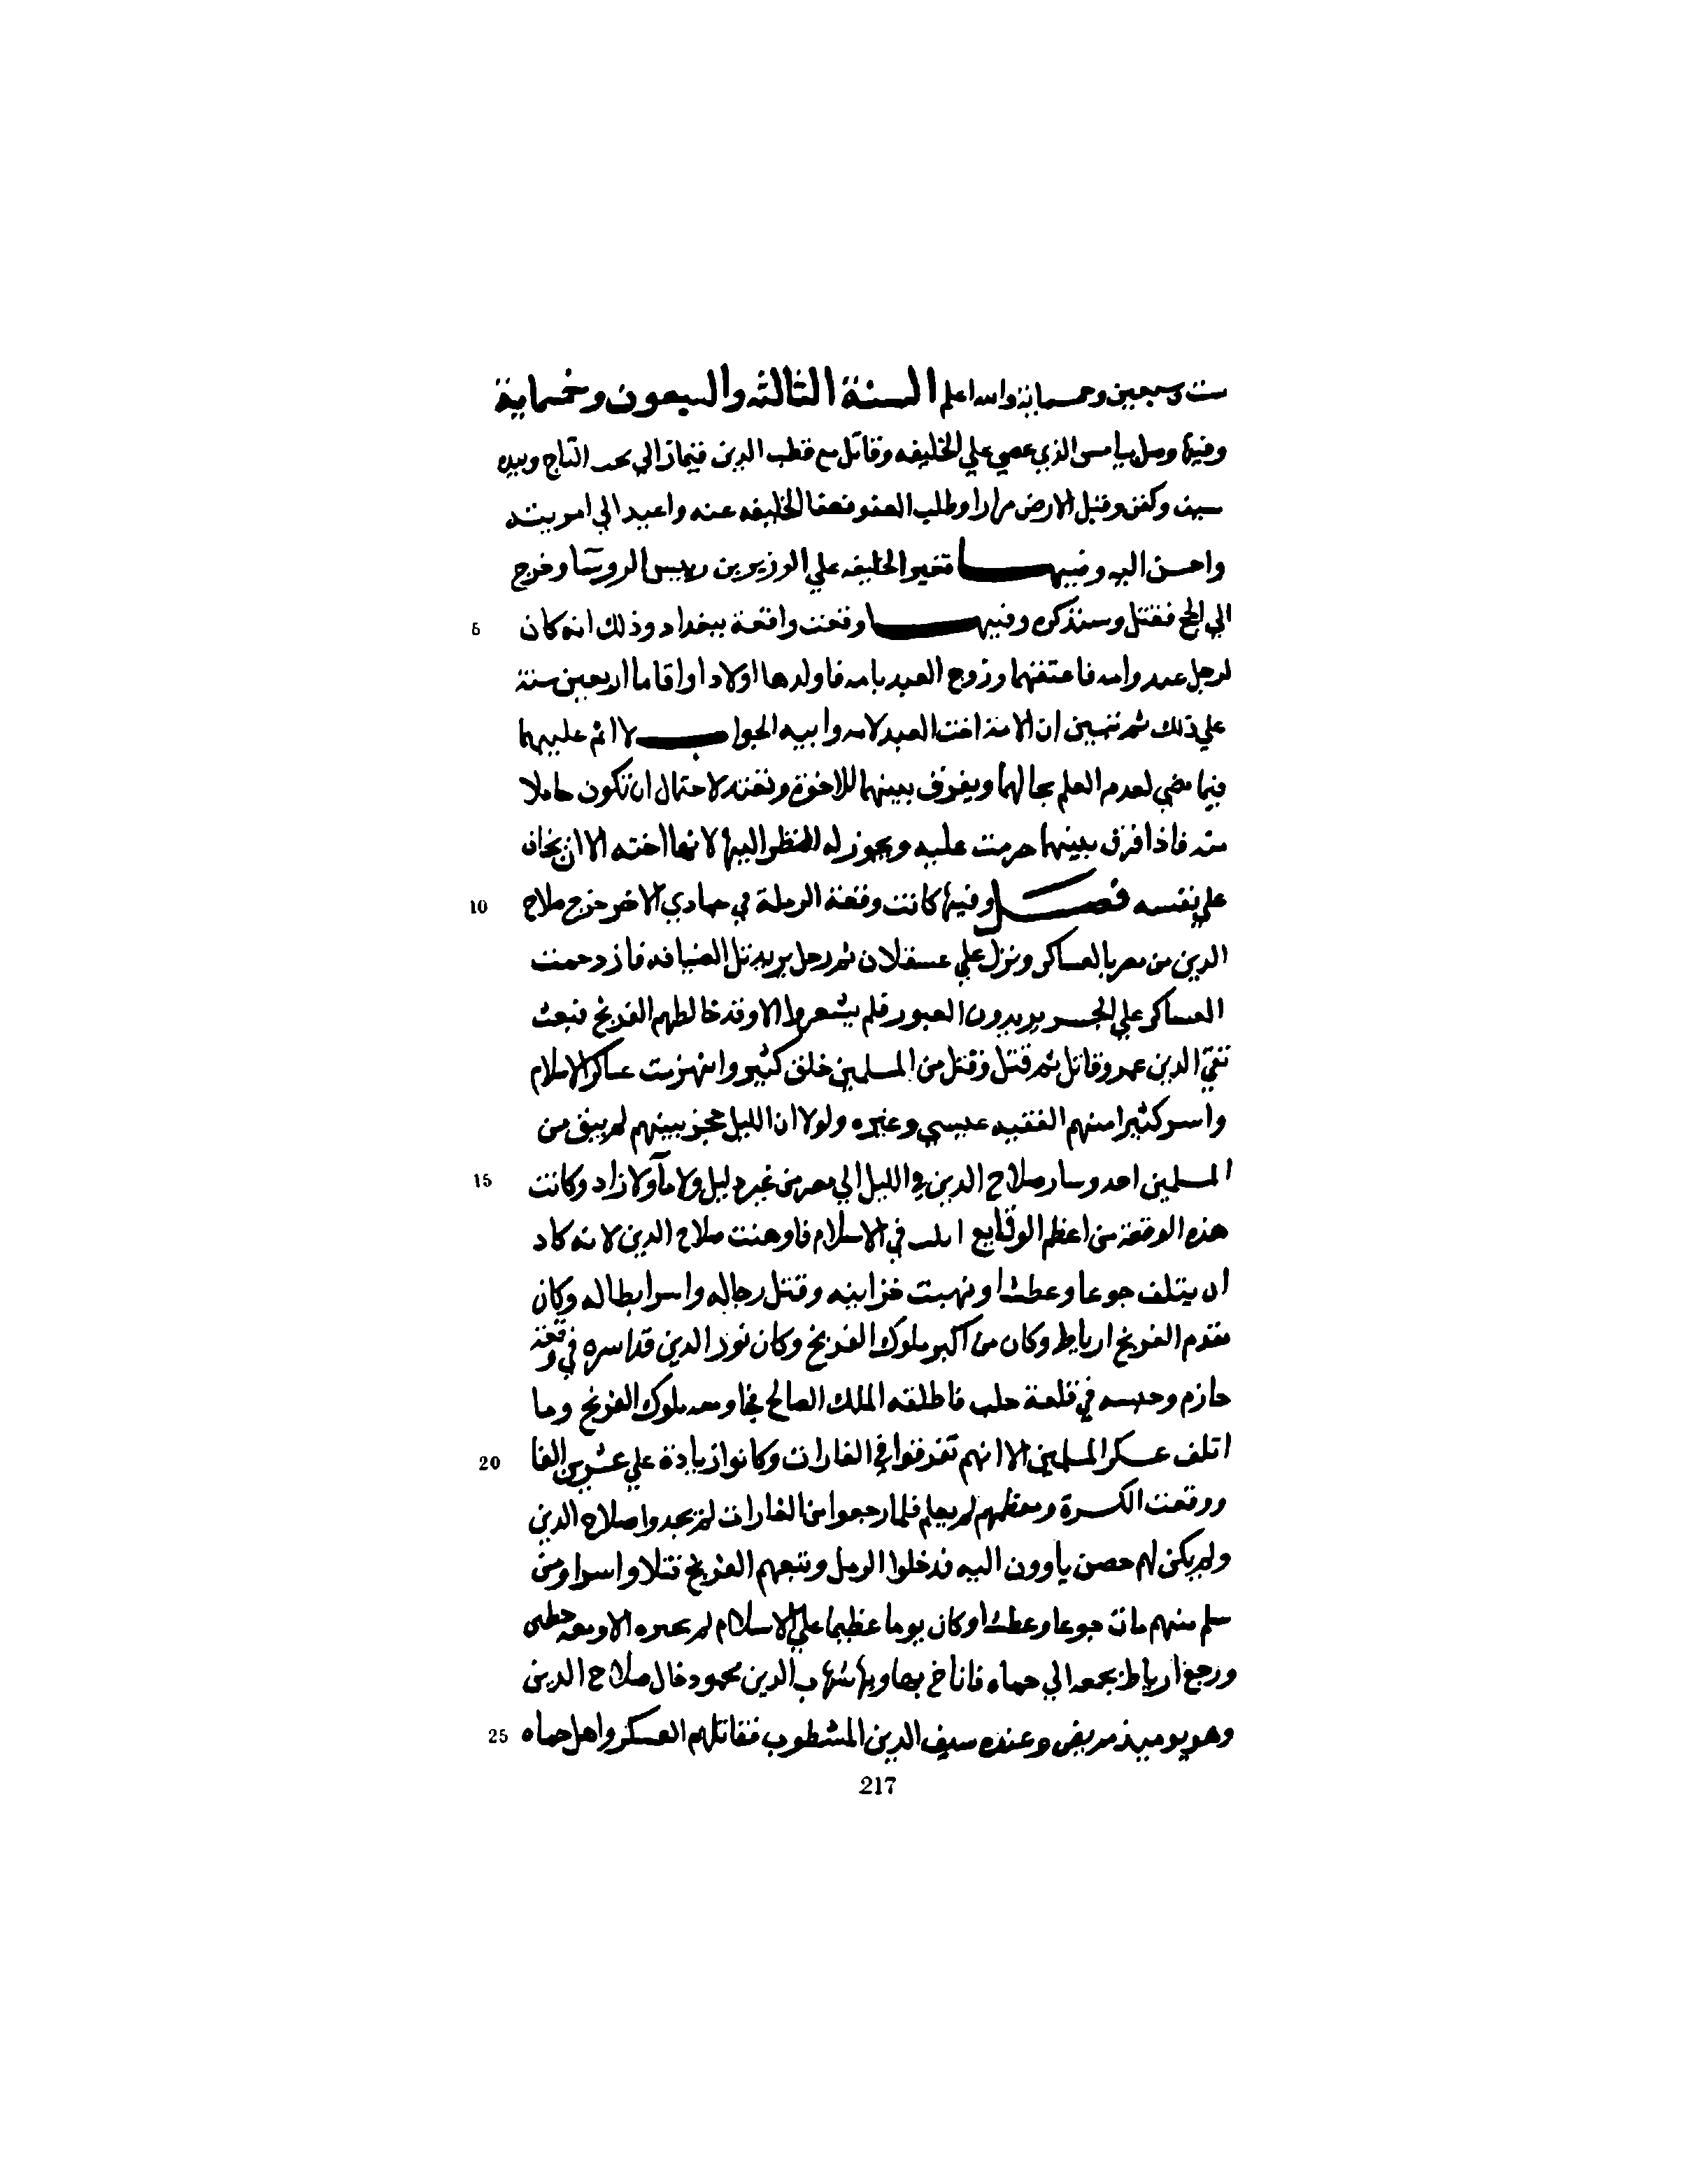 ست وسبعين وخمسماية والله اعلم السنة الثالثه والسبعون وخمسماية
وفيها وصل الذي عصي علي الخليفه وقاتل مع قطب الدين قيماز الي تحت التاج وبيده
سيف وكفن وقبل الارض مرارا وطلب العفو فعفا الخليفه عنه واعيد الي
واحسن اليه وفيهـــا تغير الخليفه علي الوزير بن رييس الروسآ وخرج
الي الحج فقتل وسنذكره وفيهـــا وقعت واقعة ببغداد وذلك انه كان
لرجل عبد وامه فاعتقهما وزوج العبد بامه فاولدها اولادا واقاما اربعين سنة
علي ذلك ثم تبين ان الامة اخت العبد لامه وابيه الجواب لا اثم عليهما
فيما مضي لعدم العلم بحالهما ويفرق بينهما للاخوة وتعتد لاحتمال ان تكون حاملا
منه فاذا فرق بينهما حرمت عليه ويجوز له النظر اليها لانها اخته الا ان يخاف
علي نفسه فصـــل وفيها كانت وقعة الرملة في جمادي الاخر خرج صلاح
الدين من مصر بالعساكر ونزل علي عسقلان ثم رحل يريد تل الصافيه فازدحمت
العساكر علي الجسر يريدون العبور فلم يشعروا الا وقد خالطهم الفرنج فبعث
تقي الدين عمر وقاتل ثم قتل وقتل من المسلمين خلق كثير وانهزمت عساكر الاسلام
واسر كثيرا منهم الفقيه عيسي وغيره ولولا ان الليل حجز بينهم لم يبق من
المسلمين احد وسار صلاح الدين في الليل الي مصر من غير دليل ولا مآ ولا زاد وكانت
هذه الوقعة من اعظم الوقايع في الاسلام فاوهنت صلاح الدين لانه كاد
ان يتلف جوعا وعطشا ونهبت خزاينه وقتل رجاله واسر ابطاله وكان
مقدم الفرنج ارياط وكان من اكبر ملوك الفرنج وكان نور الدين قد اسره في وقعة
حازم وحبسه في قلعة حلب فاطلقه الملك الصالح فجا ومعه ملوك الفرنج وما
اتلف عسكر المسلمين الا انهم تفرقوا في الغارات وكانوا زيادة علي عشرين الفا
ووقعت الكسرة ومعظمهم لم يعلم فلما رجعوا من الغارات لم يجدوا صلاح الدين
ولم يكن لهم حصن ياوون اليه فدخلوا الرمل وتبعهم الفرنج قتلا واسرا ومن
سلم منهم مات جوعا وعطشا وكان يوما عظيما علي الاسلام لم
ورجع ارياط بجمعه الي حماه فاناخ بها وبها شهاب الدين محمود خال صلاح الدين
وهو يوميذ مريض وعنده سيف الدين المشطوب فقاتلهم العسكر واهل حماه
5
10
15
20
25
217